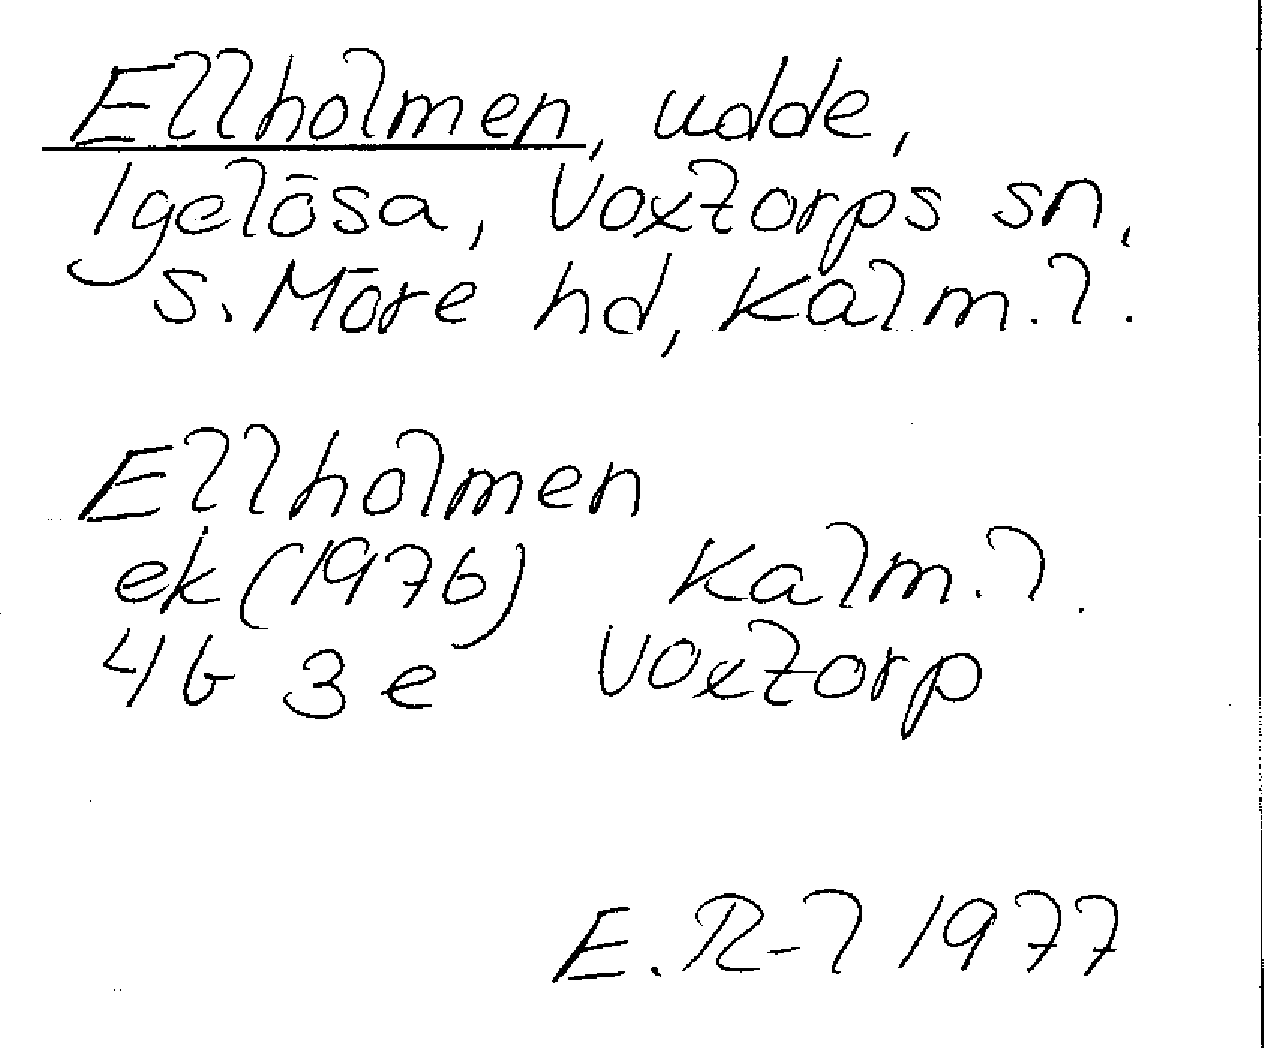 Ellholmen, udde,
Igelösa, Voxtorps sn,
S. Möre hd, Kalm. l.
Ellholmen
ek (1976) Kalm. l.
4G 3e Voxtorp
E. R-l 1977